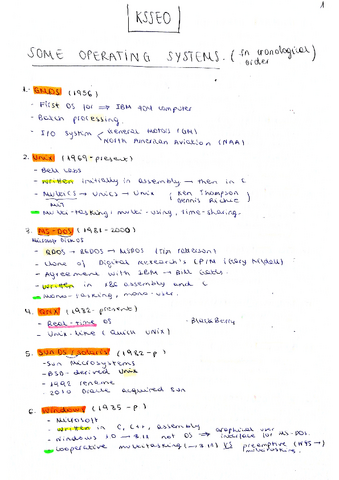 KSSEO
1
SOME OPERATING SYSTEMS. (in cronological order)
1. GMOS (1956)
- First OS for => IBM 704 computer
- Batch processing.
- I/O system General Motors (GM)
North American Aviation (NAA)
2. Unix (1969-present)
- Bell Labs
- written initially in assembly → then in C
- Multics → Unics → Unix (Ken Thompson
MIT Dennis Richie)
- Multi-tasking, multi-using, time-sharing.
3. MS-DOS (1981-2000)
Microsoft Disk OS
- QDOS → 86DOS → MSDOS (Tim Paterson)
- Clone of Digital Research's CP/M (Gary Kildall)
- Agreement with IBM → Bill Gates.
- written in x86 assembly and C
- Mono-tasking, mono-user.
4. QNX (1982-present)
- Real-time OS - BlackBerry
- Unix-like (Quick Unix)
5. Sun OS / Solaris (1982-p)
- Sun Microsystems
- BSD-derived Unix
- 1992 rename
- 2010 Oracle acquired Sun
6. Windows (1985-p)
- Microsoft
- written in C, C++, assembly
- Windows 1.0 → 3.11 not OS => graphical user interface for MS-DOS.
- cooperative multitasking (→ 3.11) VS preemptive (NT5→) multitasking.